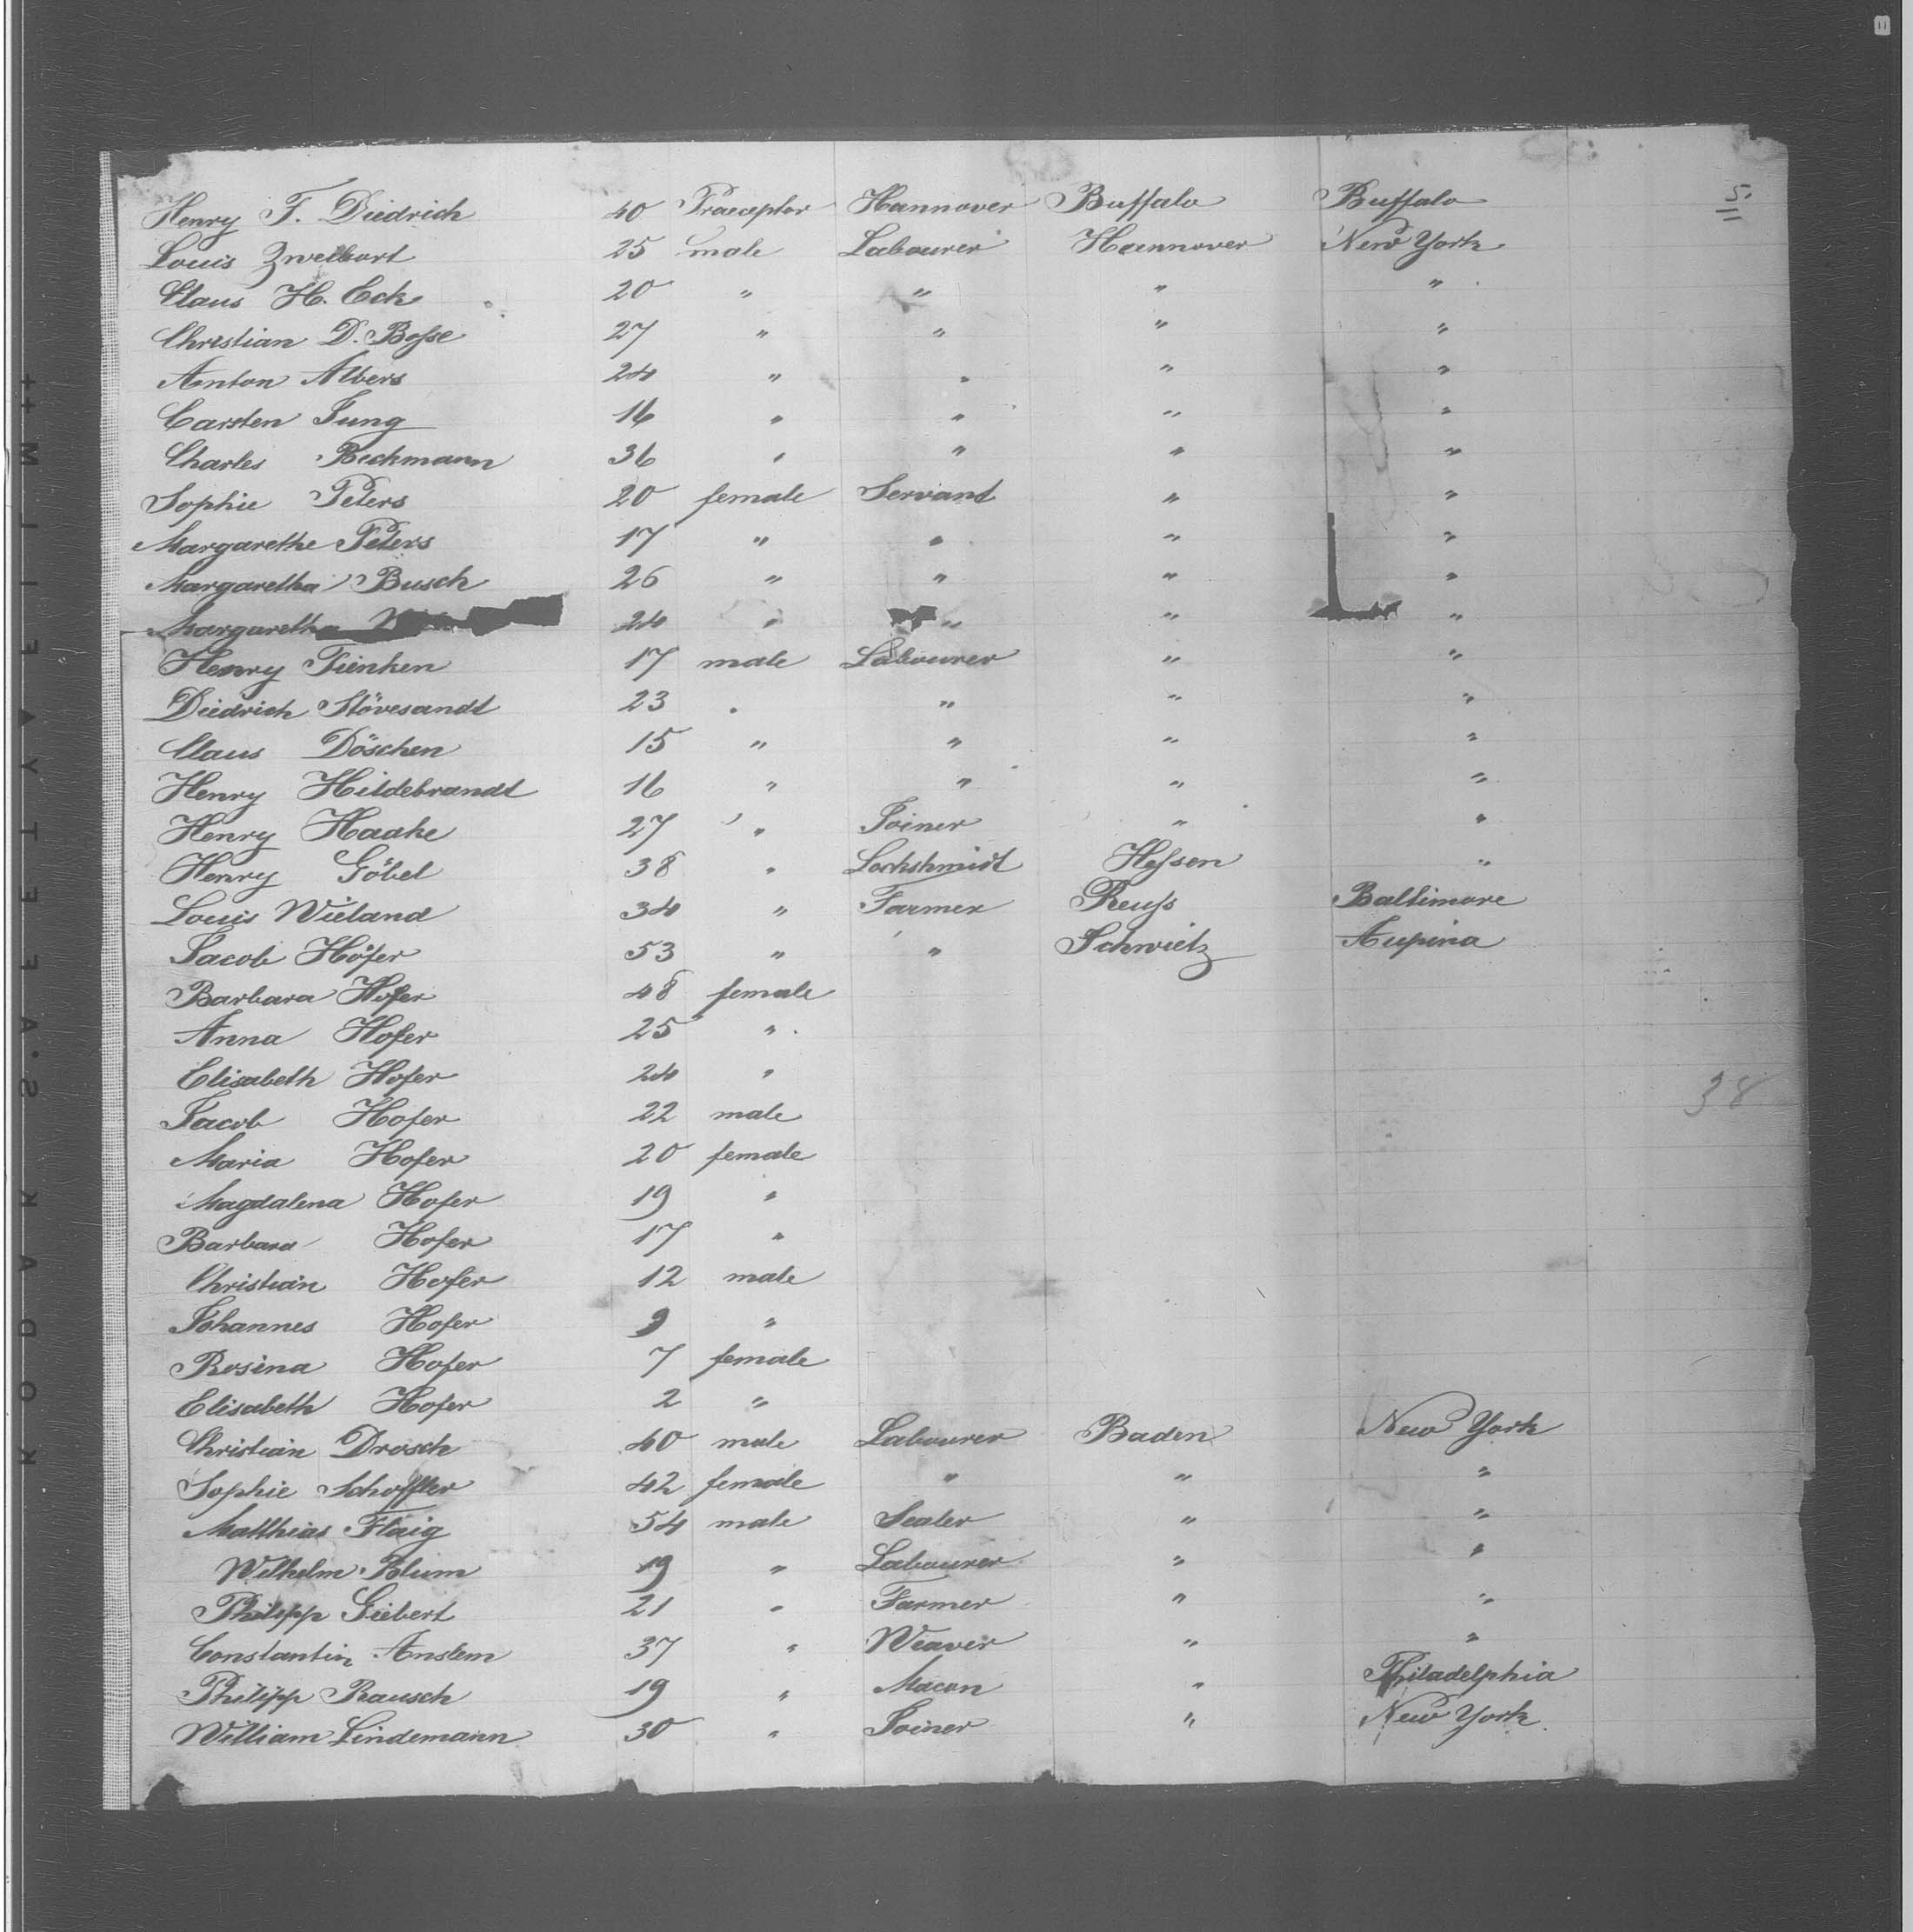 5.
Henry F. Diedrich 40 Praeceptor Hannover Buffalo Buffalo
Louis Zweibort 25 male Labourer Hannover New York
Claus H. Eck 20 " " " "
Christian D. Bosse 27 " " " "
Anton Albers 24 " " " "
Carsten Jung 16 " " " "
Charles Beckmann 36 " " " "
Sophie Peters 20 female Servant " "
Margarethe Peters 17 " " " "
Margaretha Busch 26 " " " "
Margaretha 24 " " " "
Henry Tienken 17 male Labourer " "
Diedrich Stövesandt 23 " " " "
Claus Döschen 15 " " " "
Henry Hildebrandt 16 " " " "
Henry Haake 27 " Joiner " "
Henry Göbel 38 " Lockshmidt Hessen "
Louis Wieland 34 " Farmer Reuss Baltimore
Jacob Hofer 53 " " Schwietz Aupina
Barbara Hofer 48 female
Anna Hofer 25 "
Elisabeth Hofer 24 "
Jacob Hofer 22 male
38
Maria Hofer 20 female
Magdalena Hofer 19 "
Barbara Hofer 17 "
Christian Hofer 12 male
Johannes Hofer 9 "
Rosina Hofer 7 female
Elisabeth Hofer 2 "
Christian Drosch 40 male Labourer Baden New York
Sophie Schoffler 42 female " " "
Matthias Flaig 54 male Sealer " "
Wilhelm Blum 19 " Labourer " "
Philipp Siebert 21 " Farmer " "
Constantin Anslem 37 " Weaver " "
Philipp Rausch 19 " Macon " Philadelphia
William Lindemann 30 " Joiner " New York
KODAK S.AFETY FILM ++